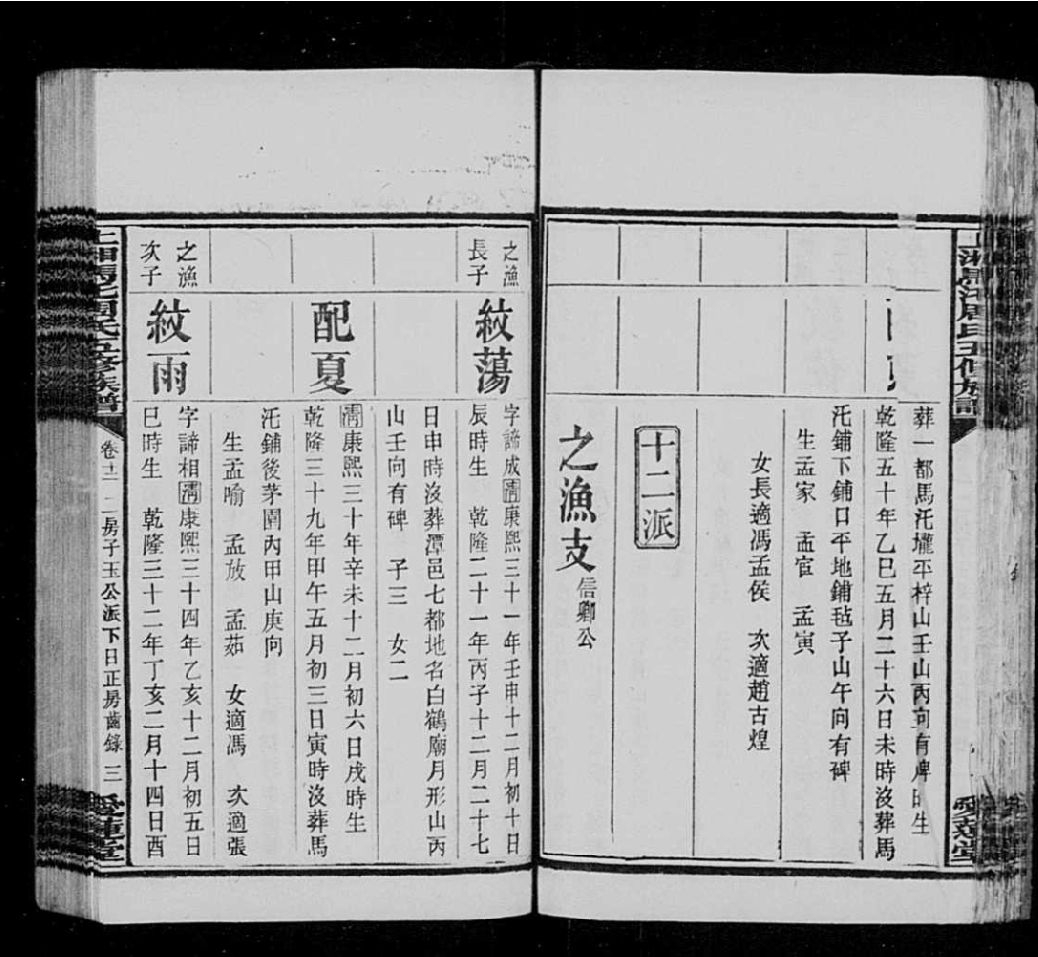 葬一都馬汑壠平梓山壬山丙向有碑
乾隆五十年乙巳五月二十六日未時沒葬馬
汑鋪下鋪口平地鋪毡子山午向有碑
生孟家 孟宦 孟寅
女長適馮孟侯 次適趙古煌
十二派
之漁支 信卿公
之漁
長子
紋蕩
字諦成清康熙三十一年壬申十二月初十日
辰時生 乾隆二十一年丙子十二月二十七
日申時沒葬潭邑七都地名白鶴廟月形山丙
山壬向有碑 子三 女二
配夏
清康熙三十年辛未十二月初六日戌時生
乾隆三十九年甲午五月初三日寅時沒葬馬
汑鋪後茅園內甲山庚向
生孟喻 孟放 孟茹 女適馮 次適張
之漁
次子
紋雨
字諦相清康熙三十四年乙亥十二月初五日
巳時生 乾隆三十二年丁亥二月十四日酉
周氏五修族譜
卷十二 二房子玉公派下日正房齒錄 三
愛蓮堂